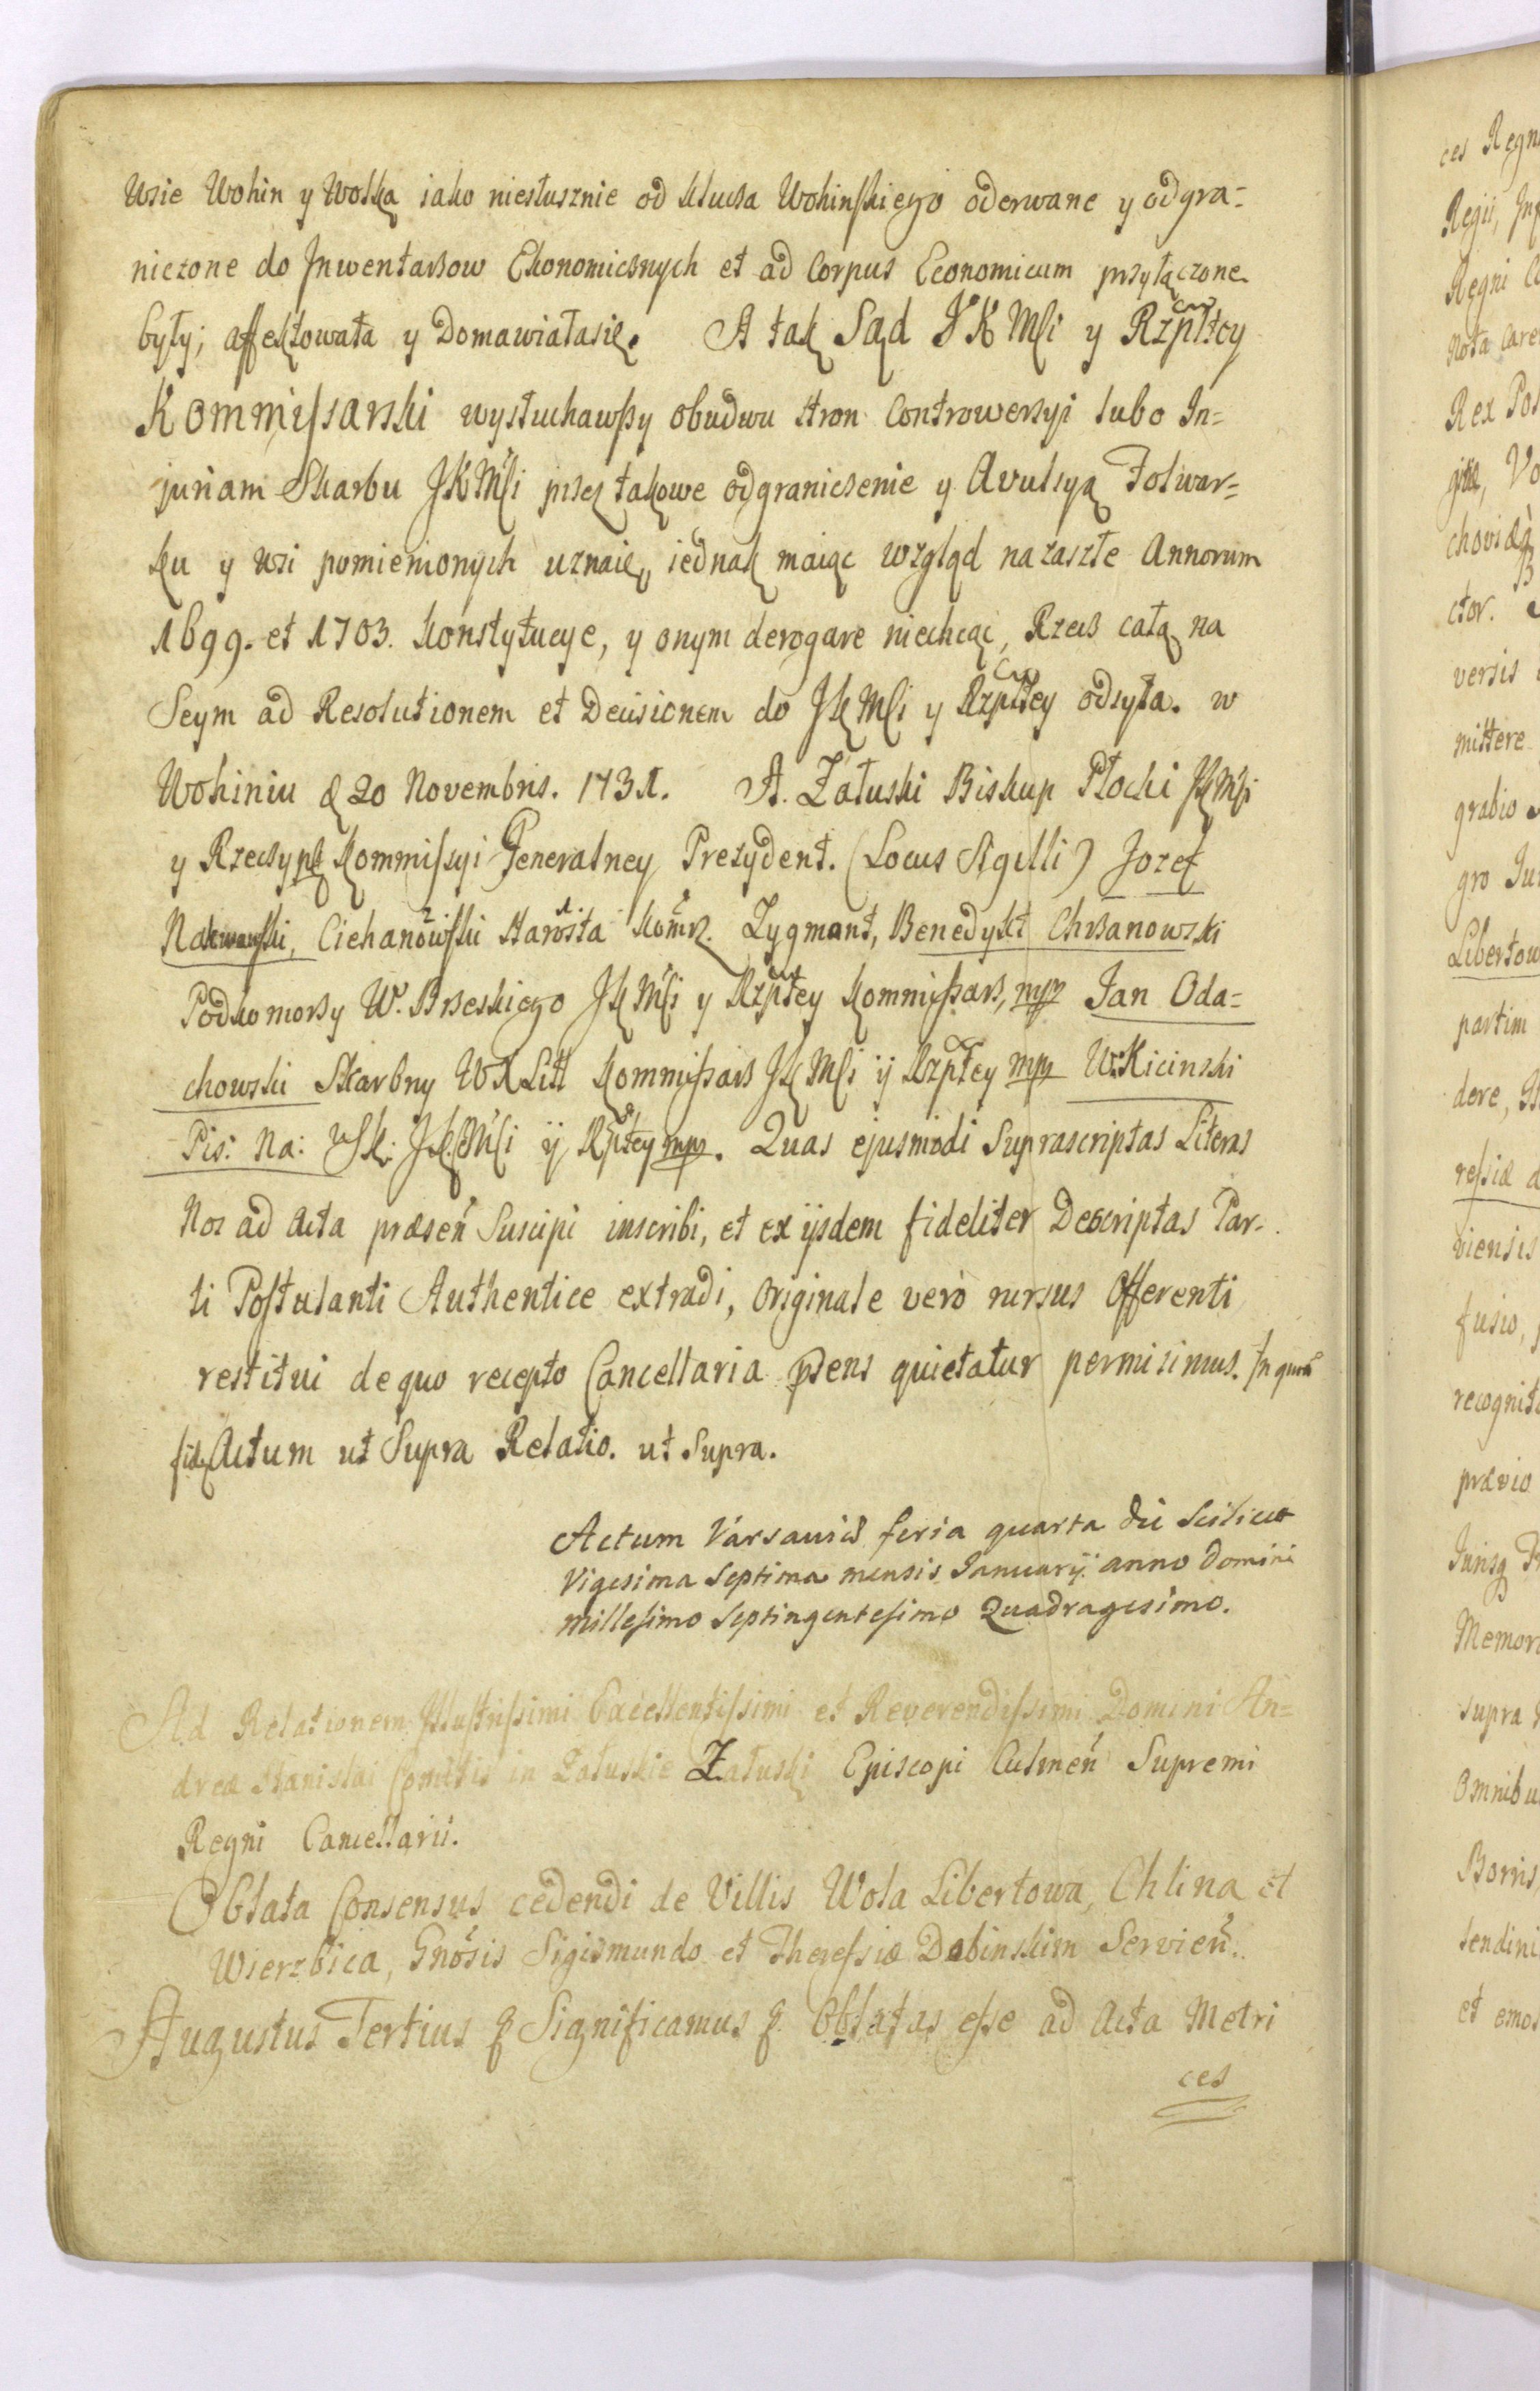 Wsie Wohin y Wolka iako niesłusznie od klucza Wohinskiego oderwane y odgra=
niczone do Inwentarzow Ekonomicznych et ad Corpus Economicum przyłączone
były; affektowała y Domawiałasię. A tak Sąd JKMsci y Rzpltey
Kommissarski wysłuchawszy obudwu stron Controwersyi lubo In=
juriam Skarbu JKMsci przez takowe odgraniczenie y Avulsyą Folwar=
ku y wsi pomienionych uznaie, iednak maiąc wzgląd na zaszłe Annorum
1699. et 1703. Konstytucye, y onym derogare niechcąc, Rzecz całą na
Seym ad Resolutionem et Decisionem do JKMsci y Rzpltey odsyła. w
Wohiniu d 20 Novembris. 1731. A. Załuski Biskup Płocki JKMsci
y Rzeczyplt Kommissyi Generalney Prezydent. (Locus Sigilli) Jozef
Nakwaski, Ciehanowski Starosta Komrz. Zygmant, Benedykt Chrzanowski
Podkomorzy W. Brzeskiego JKMsci y Rzpltey Kommissarz, mpp Jan Oda=
chowski Skarbny WXLitt Kommissarz JKMsci ÿ Rzpltey mpp W. Kicinski
Pis: Na: Sk: JKMsci ÿ Rzpltey mpp. Quas ejusmodi Suprascriptas Literas
Nos ad Acta præseñ Suscipi inscribi, et ex ijsdem fideliter Descriptas Par=
ti Postulanti Authentice extradi, Originale verò rursus Offerenti
restitui de quo recepto Cancellaria pñens quietatur permisimus. In quorũ
fidẽ Actum ut Supra Relatio. ut Supra.
Actum Varsaviæ feria quarta die Scilicet
Vigesima Septima mensis Januarij anno Domini
Millesimo Septingentesimo Quadragesimo.
Ad Relationem Illustrissimi Excellentissimi et Reverendissimi Domini An=
dreæ Stanislai Comitis in Załuskie Załuski Episcopi Culmeñ Supremi
Regni Cancellarii.
Oblata Consensus cedendi de Villis Wola Libertowa, Chlina et
Wierzbica, Gnõsis Sigismundo et Theressiæ Dabinskim Servieñ.
Augustus Tertius & Significamus & Oblatas esse ad Acta Metri
ces